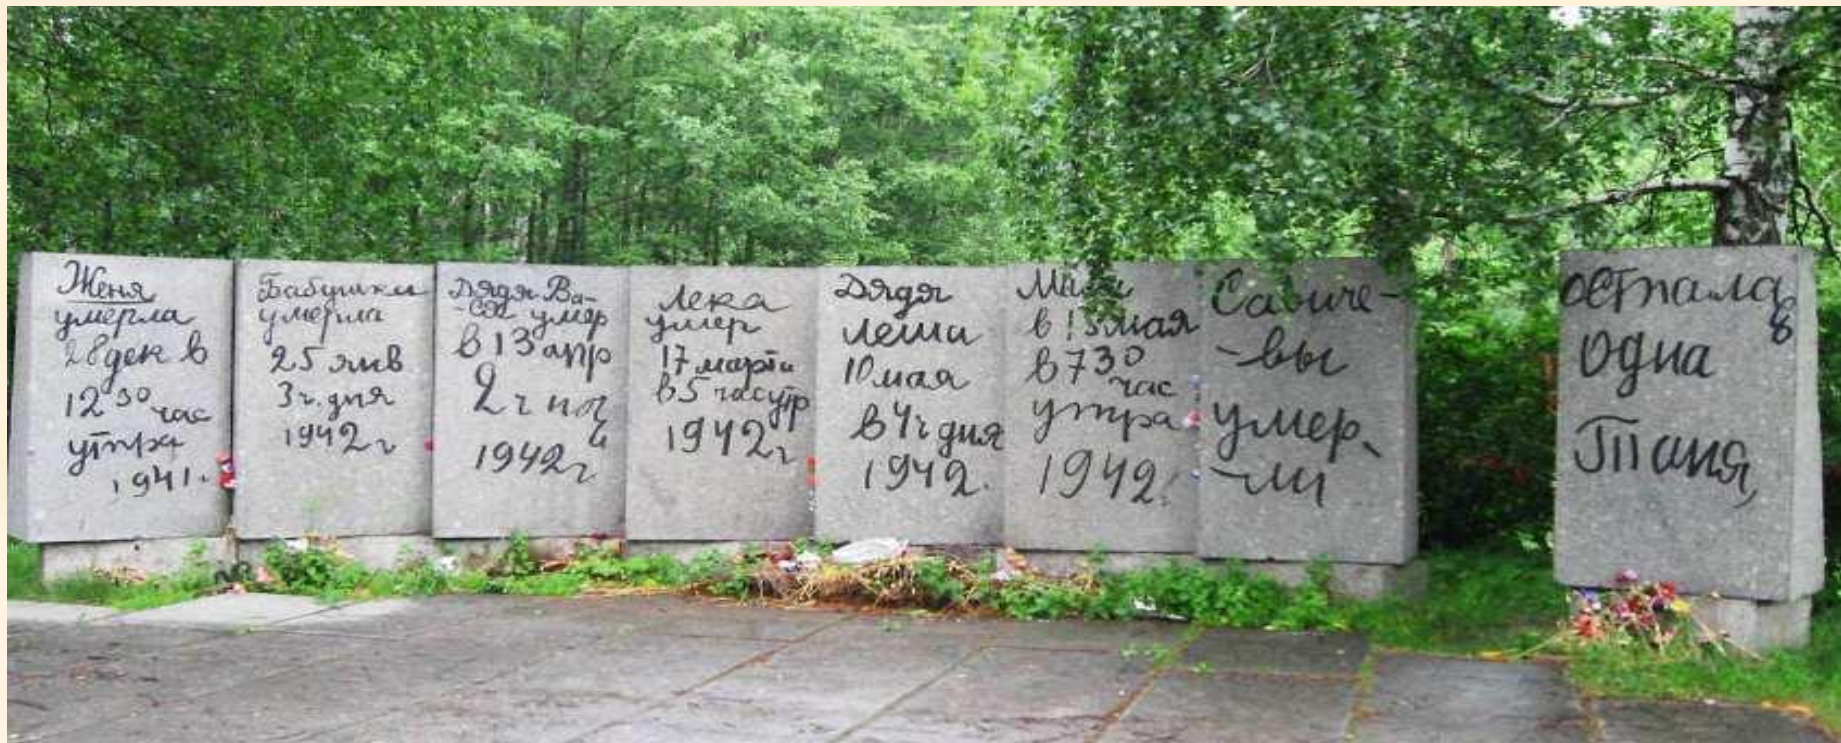 Женя
умерла
28 дек в
12 30 час
утра
1941г.
Бабушка
умерла
25 янв
3 ч. дня
1942 г
Дядя Ва-
-ся умер
в 13 апр
2 ч ноч
1942 г
Лека
умер
17 марта
в 5 час утр
1942 г
Дядя
Леша
10 мая
в 4 ч дня
1942.
Мама
в 13 мая
в 7 30
час
утра
1942.
Савиче-
-вы
умер-
-ли
осталась
одна
Таня